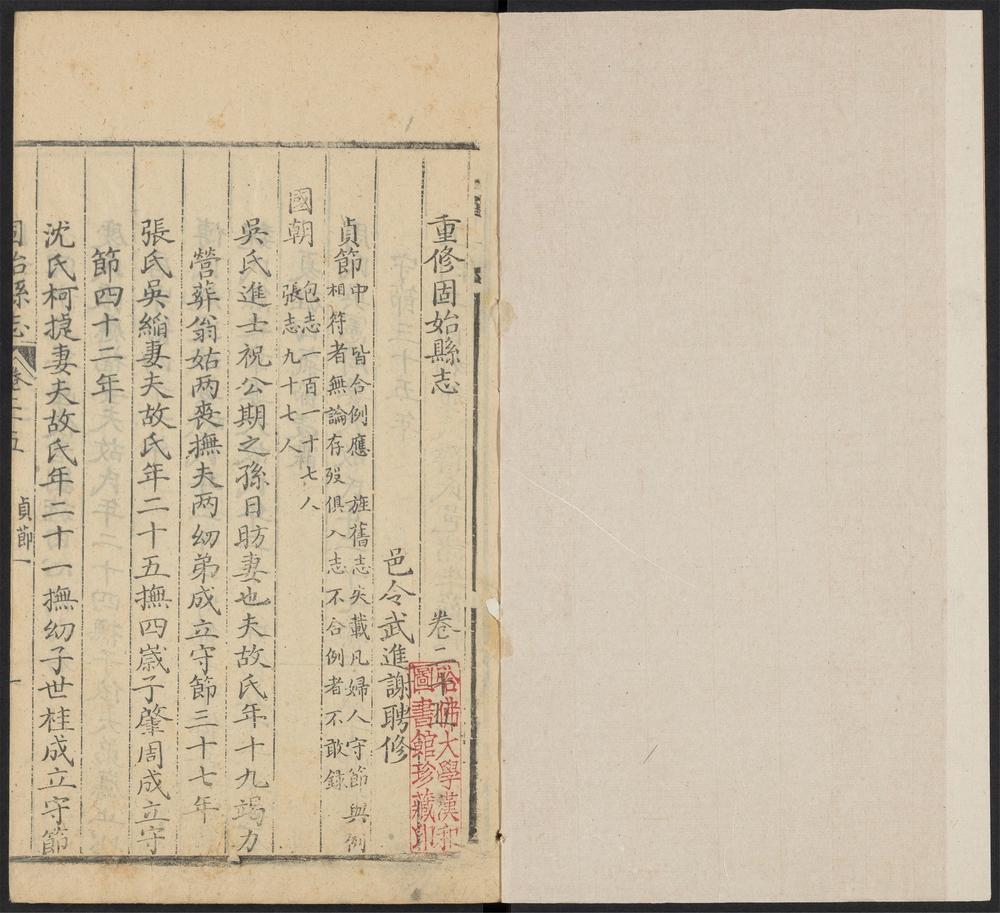 重修固始縣志 卷二十五
邑令武進謝聘修
貞節 中皆合例應 旌舊志失載凡婦人守節與例
相符者無論存歿俱入志不合例者不敢錄
國朝 包志一百一十七人
張志九十七人
吳氏進士祝公期之孫日昉妻也夫故氏年十九竭力
營葬翁姑两喪撫夫两幼弟成立守節三十七年
張氏吳縚妻夫故氏年二十五撫四歲子肇周成立守
節四十二年
沈氏柯㨗妻夫故氏年二十一撫幼子世桂成立守節
固始縣志 卷二十五 貞節 一
哈佛大學漢和
圖書館珍藏印